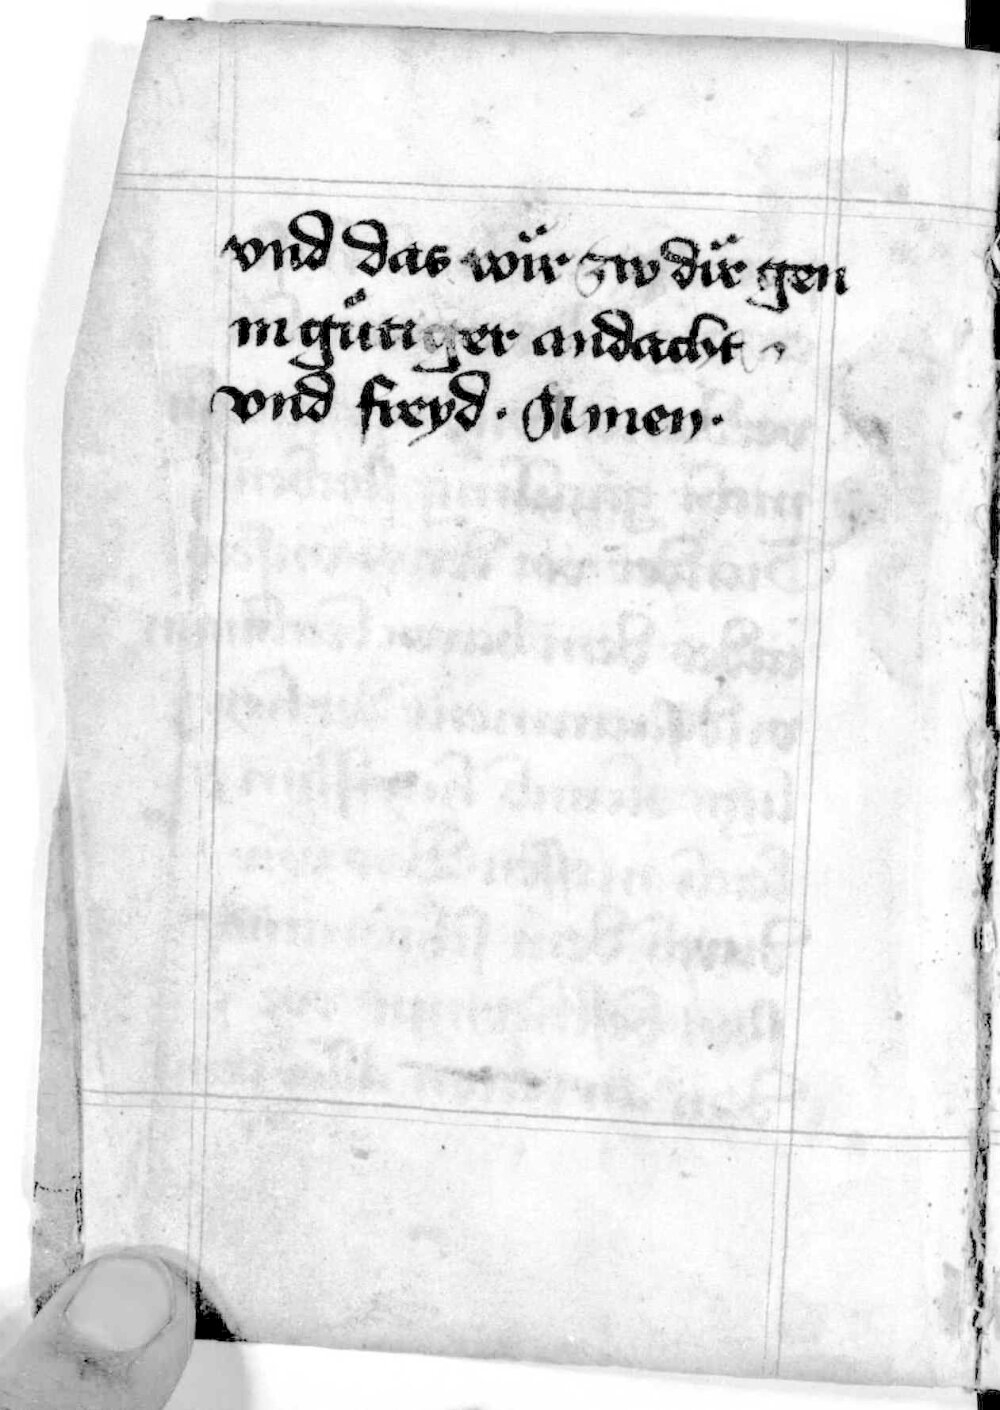 vnd das wür zw dür gen
in gütiger andacht
vnd freyd · Amen ·